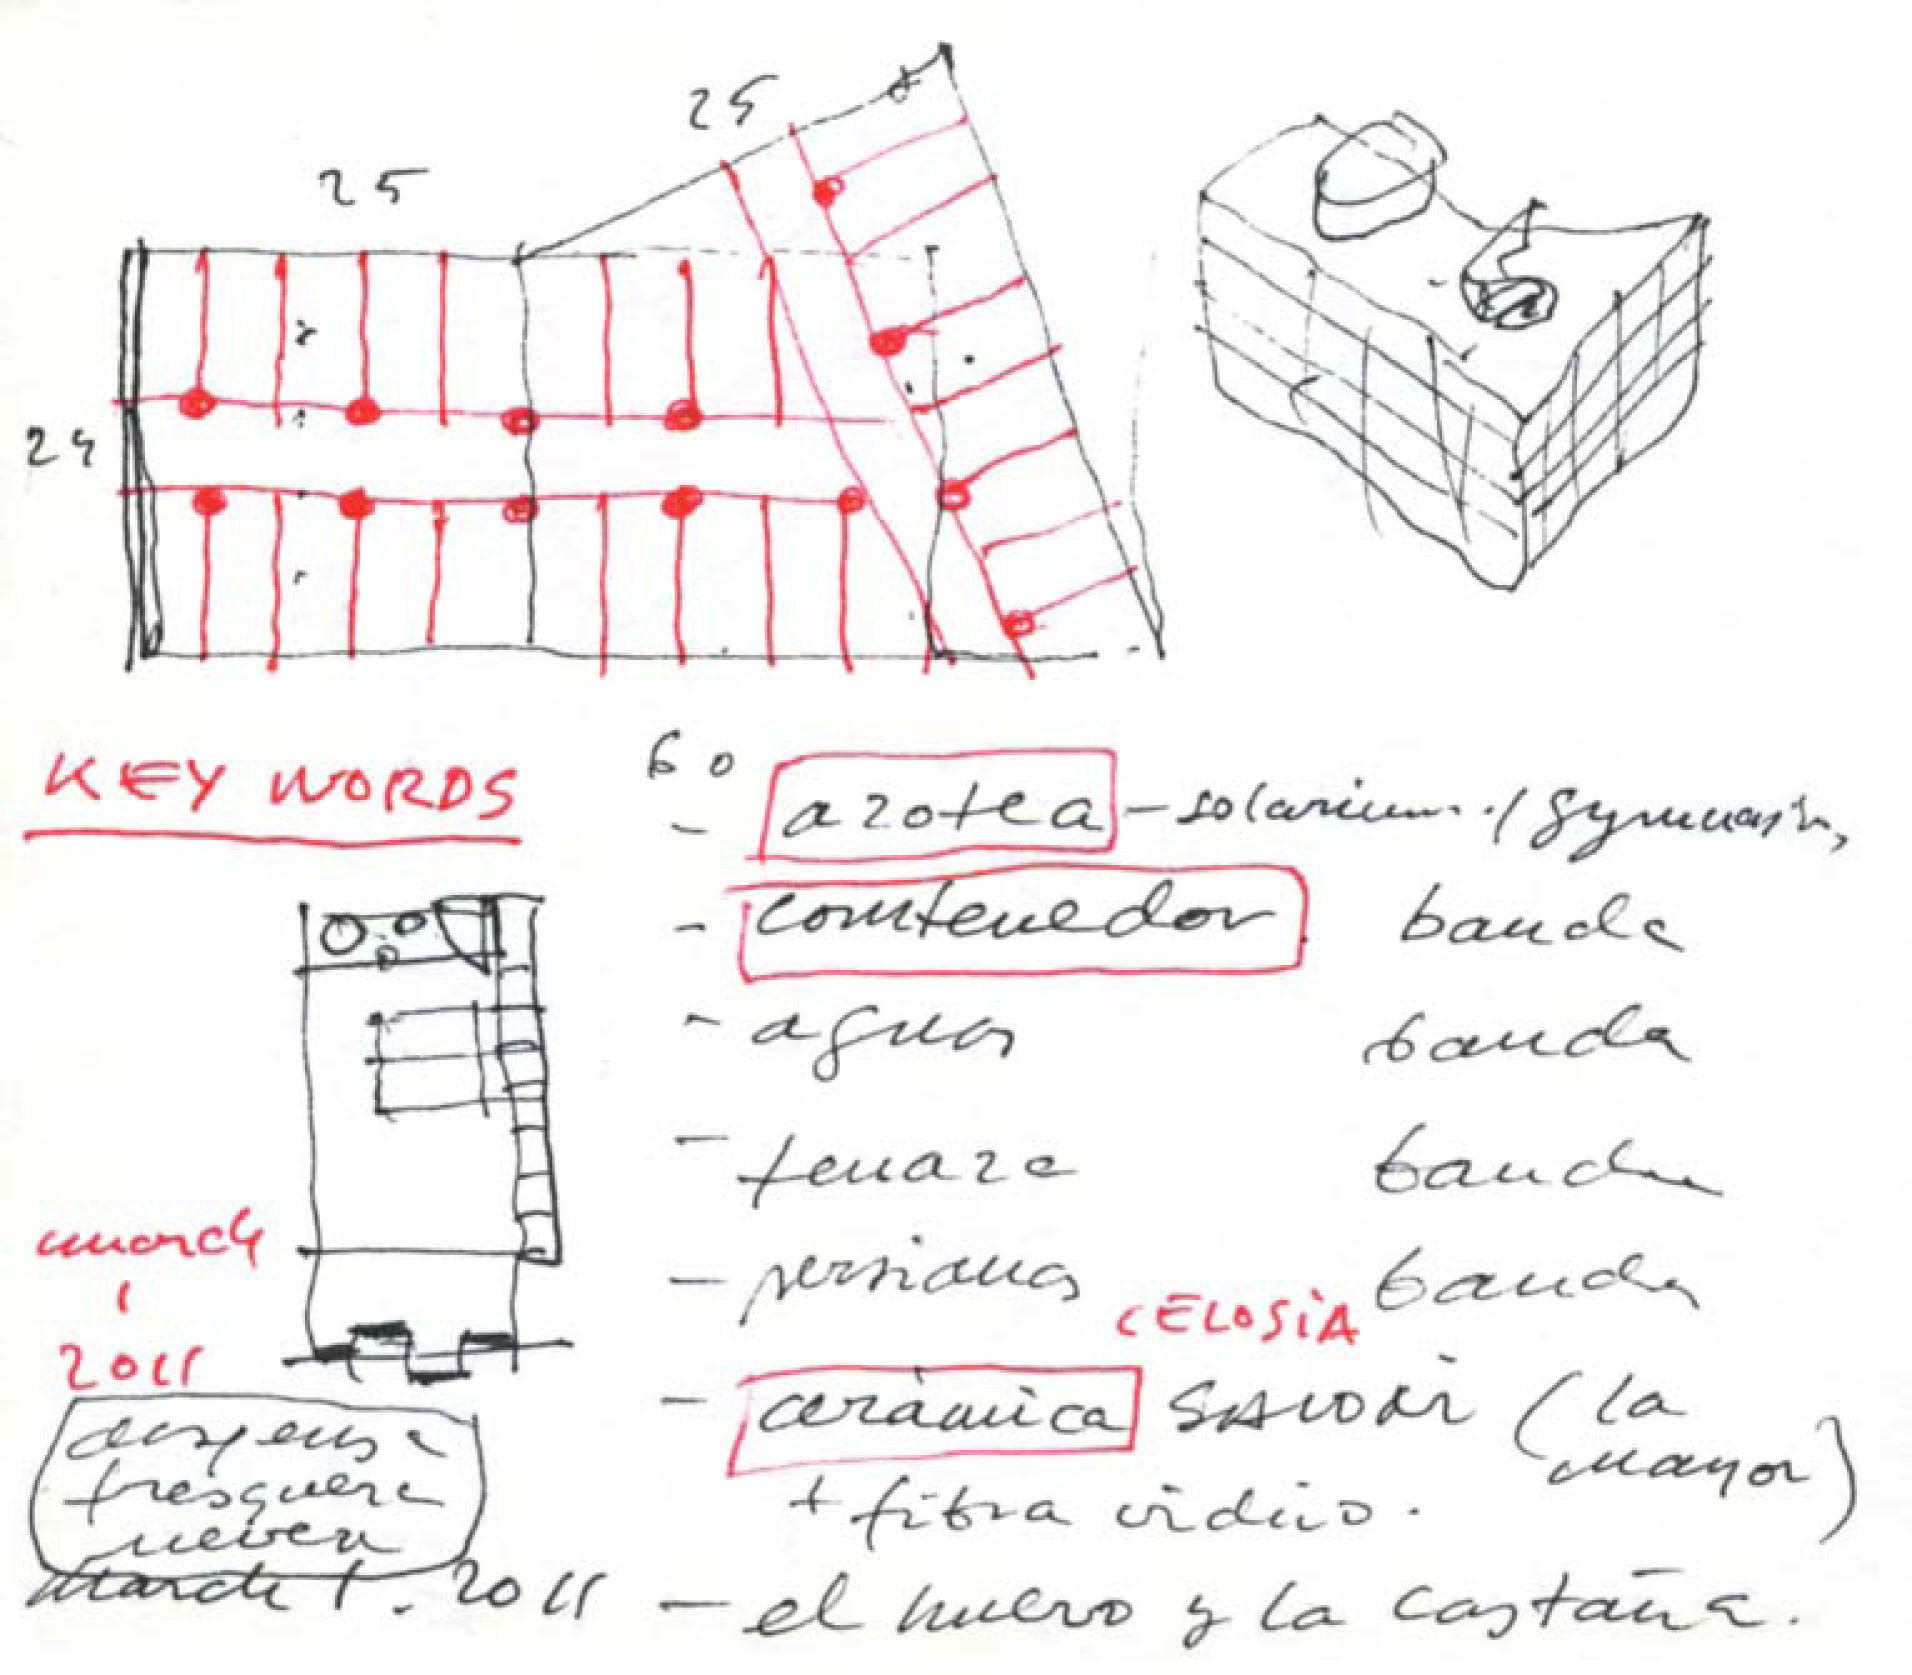 25
25
24
KEY WORDS
60
- azotea - solarium. / gymnasio,
- contenedor. banda
- agua banda
- terraza banda
- persiana banda
CELOSiA
- cerámica (la mayor)
+ fibra vidrio.
- el huevo y la castaña.
march
1
2011
despensa
fresquera
nevera
March 1. 2011